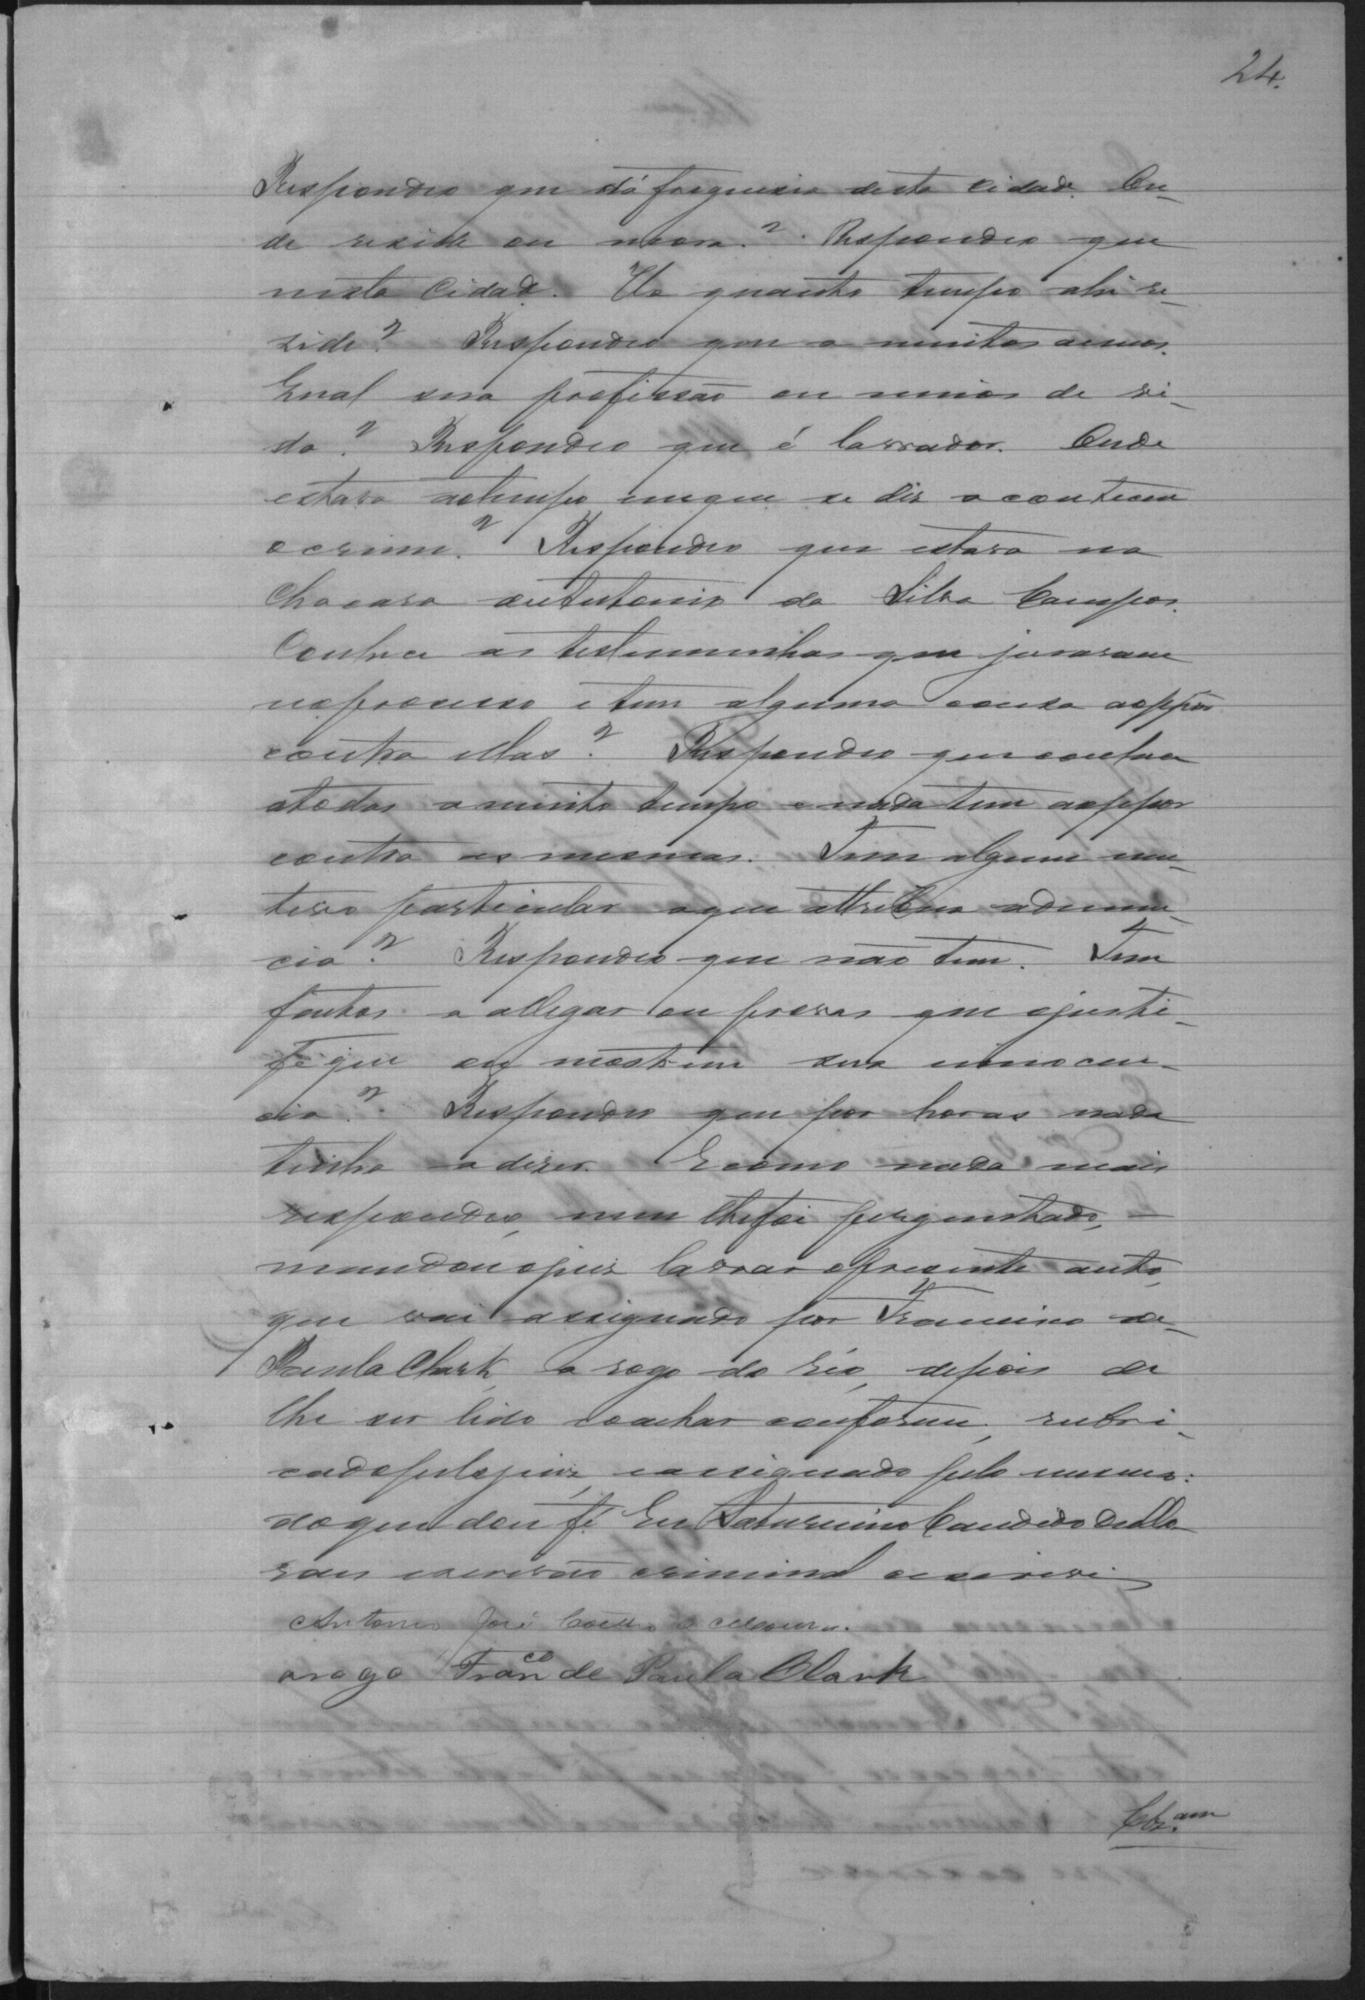 24.
Respondeo que dá freguesia desta cidade. On-
de reside ou mora? Respondeo que
nesta Cidade. Ha quanto tempo ahi re-
zide? Respondeo que a muitos annos.
Qual sua profissão ou meios de vi-
da? Respondeo que é lavrador. Onde
estava aotempo emque se diz aconteceu
ocrime? Respondeo que estava na
Chacara de Antonio da Silva Campos.
Conhece as testemunhas que juraram
noprocesso e tem alguma cousa aoppor
contra ellas? Respondeo queconhece
atodas a muito tempo e nada tem aoppor
contra as mesmas. Tem algum mo-
tivo particular aque attribua adenun-
cia? Respondeo que não tem. Tem
factos a allegar ou provas que ojusti-
fique ou mostrem sua innocen-
cia? Respondeo que por horas nada
tinha a dizer. Ecomo nada mais
respondeo, nem lhefoi perguntado,
mandou ojuiz lavrar opresente auto,
que vai assignado por Francisco de
Paula Clark, a rogo do réo, depois de
lhe ser lido eachar conforme, rubri-
cadopelojuiz, eassignado pelo mesmo:
doque dou fé. Eu Saturnino Candido de Mo-
raes escrivão criminal oescrevi
Antonio José
arogo Franco de Paula Clark